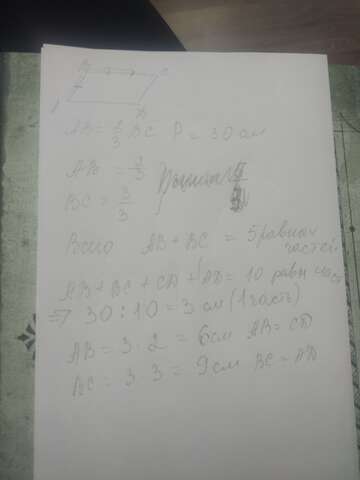 B C
A D
AB = 2/3 BC P = 30 см
AB = 2/3
BC = 3/3
Всего AB + BC = 5 равных частей
AB + BC + CD + AD = 10 равн част
=> 30 : 10 = 3 см (1 часть)
AB = 3 · 2 = 6 см AB = CD
BC = 3 · 3 = 9 см BC = AD